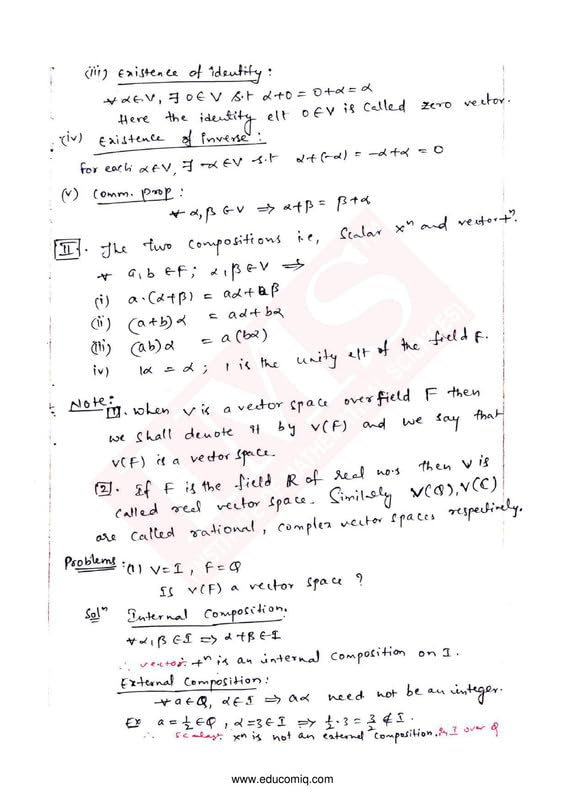 (iii) Existence of identity :
∀ α∈V, ∃ 0∈V s.t α+0 = 0+α = α
Here the identity elt 0∈V is called zero vector.
(iv) Existence of inverse :
for each α∈V, ∃ -α∈V s.t α+(-α) = -α+α = 0
(v) Comm. prop :
∀ α,β ∈V ⇒ α+β = β+α
II. The two compositions i.e, scalar xⁿ and vector +ⁿ.
∀ a,b ∈F; α,β∈V ⇒
(i) a·(α+β) = aα+aβ
(ii) (a+b)α = aα+bα
(iii) (ab)α = a(bα)
iv) 1α = α ; 1 is the unity elt of the field F.
Note: 1. When V is a vector space over field F then
we shall denote it by V(F) and we say that
V(F) is a vector space.
2. If F is the field R of real no.s then V is
called real vector space. Similarly V(Q), V(C)
are called rational, complex vector spaces respectively.
Problems: (1) V=I, F=Q
Is V(F) a vector space ?
Solⁿ Internal Composition.
∀ α,β ∈ I ⇒ α+β ∈ I
∴ vector +ⁿ is an internal composition on I.
External Composition :
∀ a∈Q, α∈I ⇒ aα need not be an integer.
Ex a = 1/2 ∈Q, α=3∈I ⇒ 1/2·3 = 3/2 ∉ I.
∴ scalar xⁿ is not an external composition in I over Q
www.educomiq.com